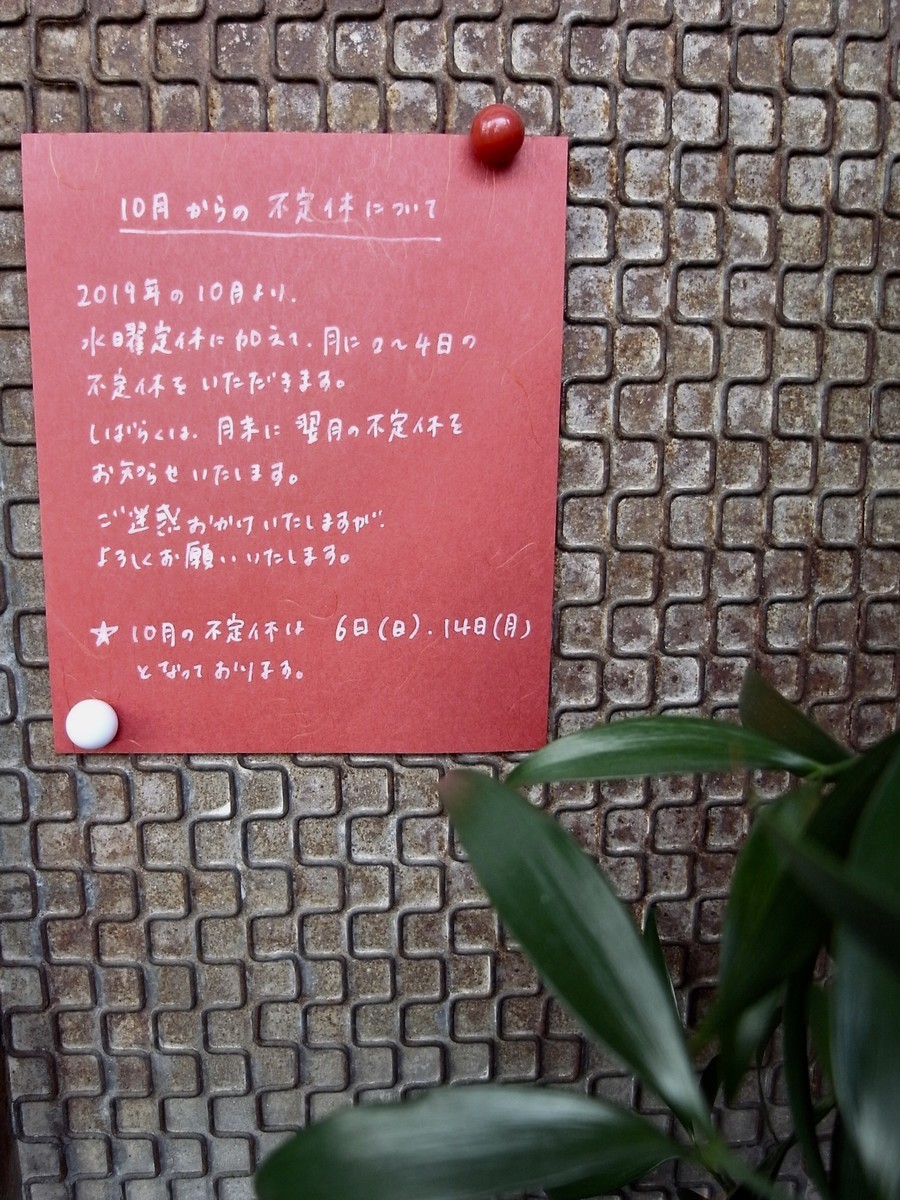 10月からの不定休について
2019年の10月より、
水曜定休に加えて、月に2〜4日の
不定休をいただきます。
しばらくは、月末に翌月の不定休を
お知らせいたします。
ご迷惑おかけいたしますが、
よろしくお願いいたします。
★10月の不定休は 6日(日)、14日(月)
となっております。